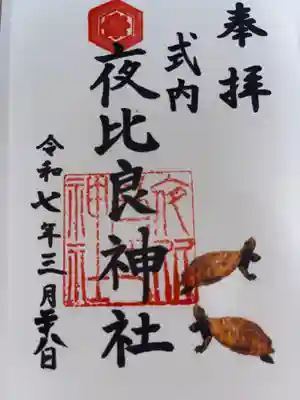 奉拝
式内
夜比良神社
令和七年三月二十八日